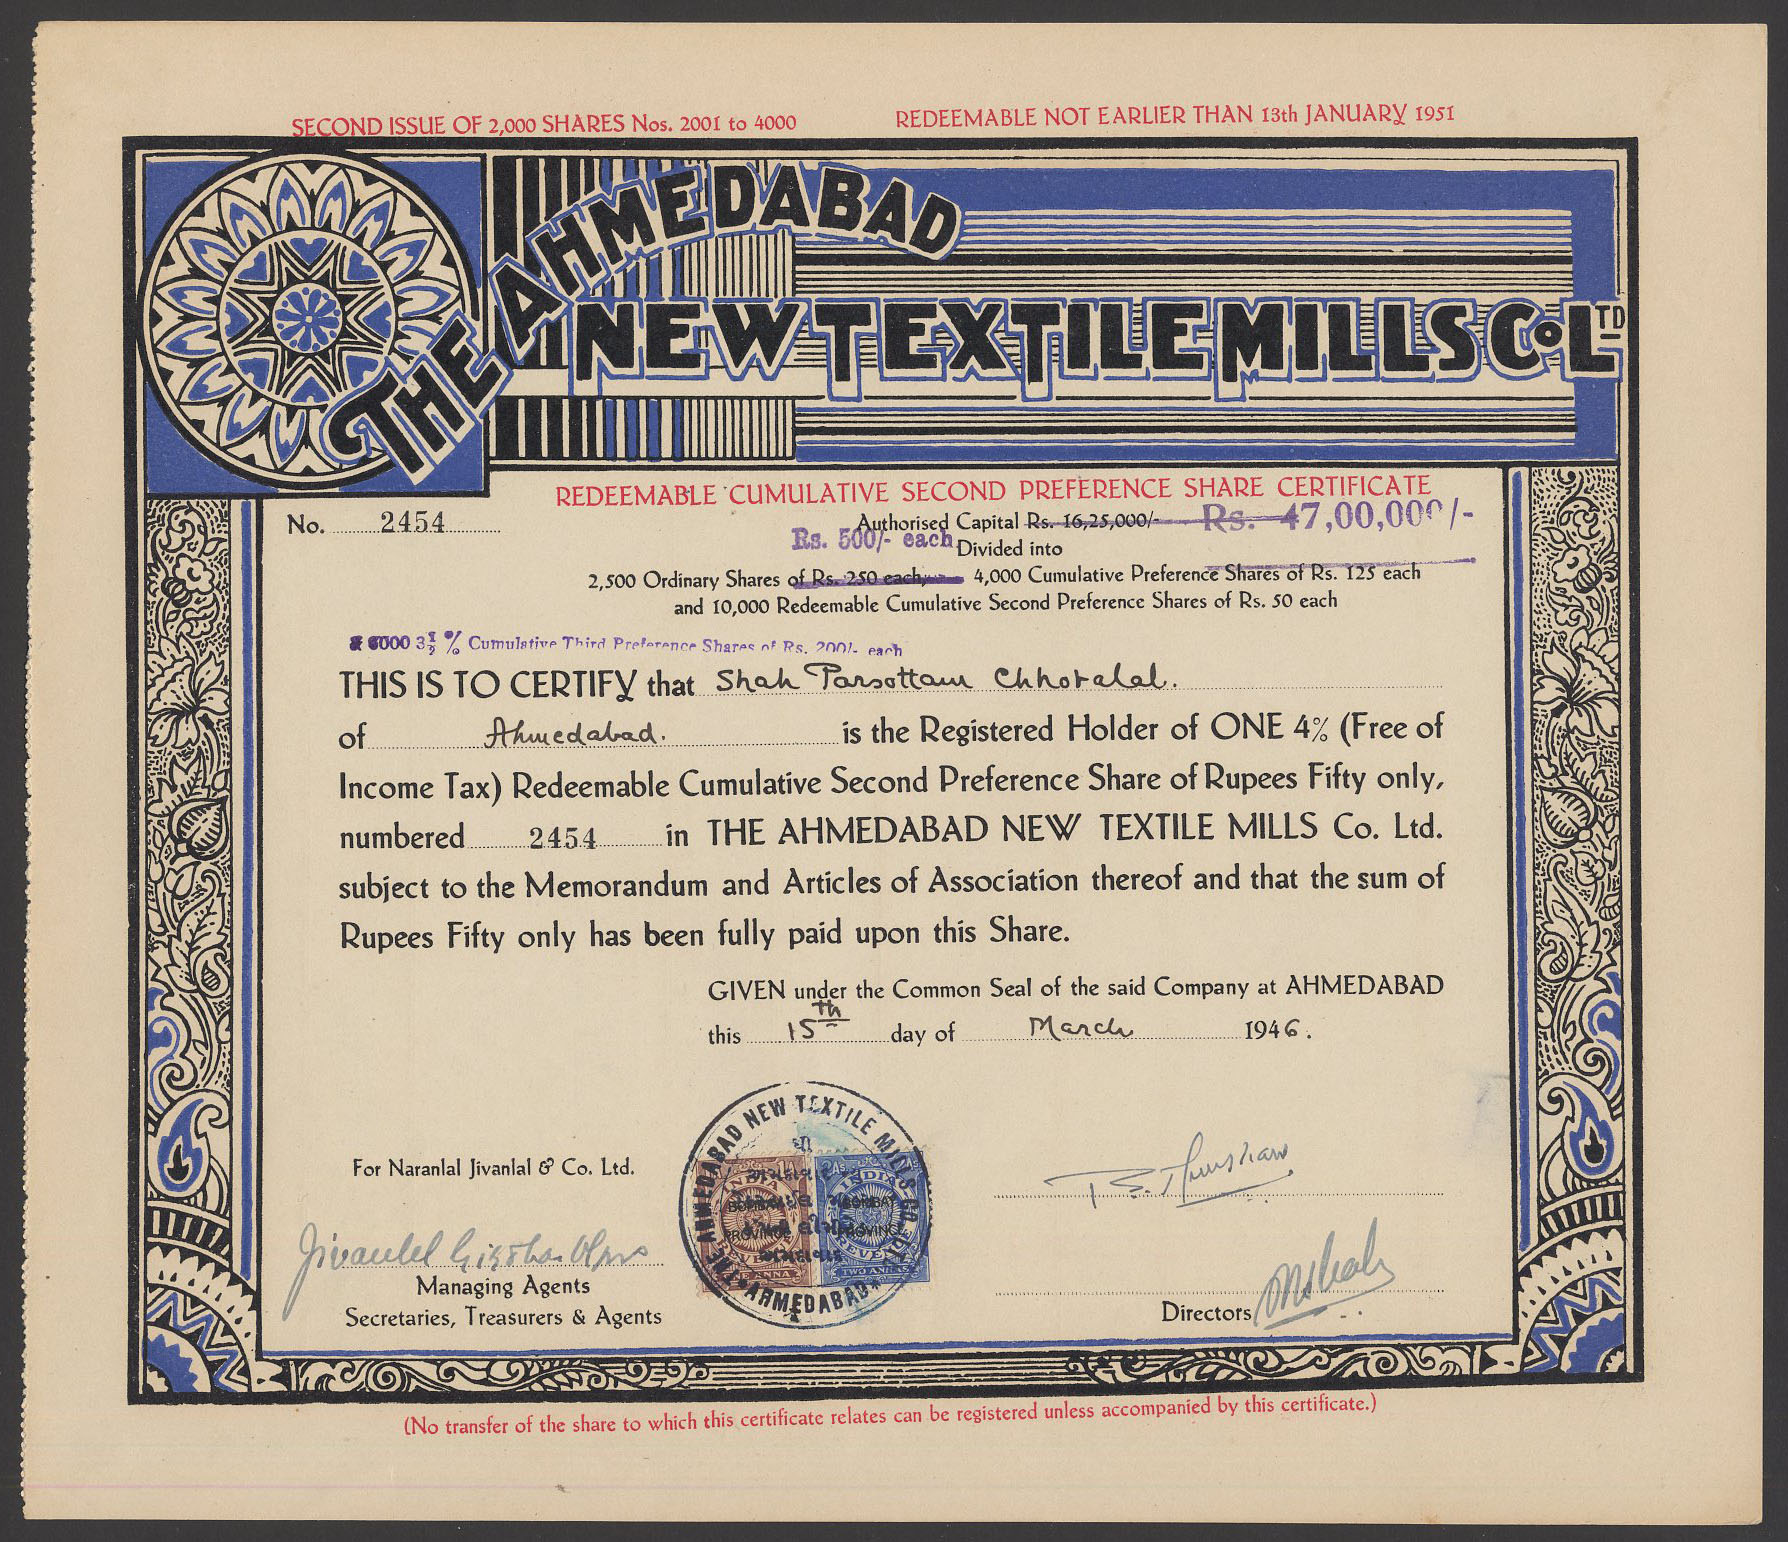 SECOND ISSUE OF 2,000 SHARES Nos. 2001 to 4000
REDEEMABLE NOT EARLIER THAN 13th JANUARY 1951
THE AHMEDABAD
NEW TEXTILE MILLS Co LTD
REDEEMABLE CUMULATIVE SECOND PREFERENCE SHARE CERTIFICATE
No. 2454
Authorised Capital Rs. 16,25,000/- Rs. 47,00,000/-
Rs. 500/- each Divided into
2,500 Ordinary Shares of Rs. 250 each, 4,000 Cumulative Preference Shares of Rs. 125 each
and 10,000 Redeemable Cumulative Second Preference Shares of Rs. 50 each
& 6000 3½ % Cumulative Third Preference Shares of Rs. 200/- each
THIS IS TO CERTIFY that Shah Parsottam Chhotalal.
of Ahmedabad. is the Registered Holder of ONE 4% (Free of
Income Tax) Redeemable Cumulative Second Preference Share of Rupees Fifty only,
numbered 2454 in THE AHMEDABAD NEW TEXTILE MILLS Co. Ltd.
subject to the Memorandum and Articles of Association thereof and that the sum of
Rupees Fifty only has been fully paid upon this Share.
GIVEN under the Common Seal of the said Company at AHMEDABAD
this 15th day of March 1946.
THE AHMEDABAD NEW TEXTILE MILLS CO. LTD.
AHMEDABAD
INDIA
BOMBAY
PROVINCE
REVENUE
ONE ANNA
INDIA
BOMBAY
PROVINCE
REVENUE
TWO ANNAS
For Naranlal Jivanlal & Co. Ltd.
Managing Agents
Secretaries, Treasurers & Agents
Directors
(No transfer of the share to which this certificate relates can be registered unless accompanied by this certificate.)